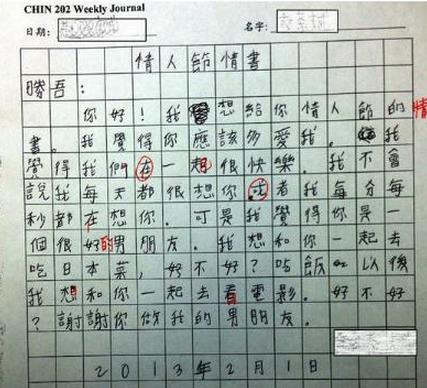 CHIN 202 Weekly Journal
日期: 名字:
情人節情書
勝吾:
你好!我想給你情人節的情
書。我覺得你應該多愛我。我
覺得我們在一起很快樂。我不會
說我每天都很想你。或者我每分每
秒都在想你。可是我覺得你是一
個很好的男朋友。我想和你一起去
吃日本菜,好不好?吃飯以後
我想和你一起去看電影。好不好
?謝謝你做我的男朋友。
2013年2月1日